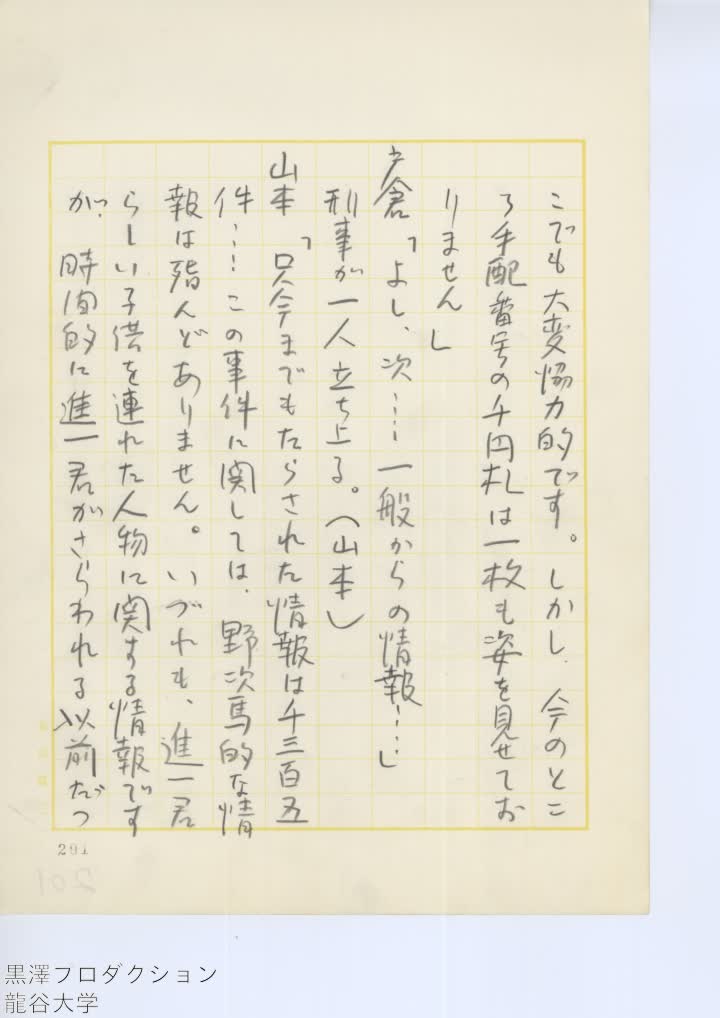 こでも大変協力的です。しかし、今のとこ
ろ手配番号の千円札は一枚も姿を見せてお
りません」
戸倉「よし、次……一般からの情報……」
刑事が一人立ち上る。(山本)
山本「只今までもたらされた情報は千三百五
件……この事件に関しては、野次馬的な情
報は殆んどありません。いづれも、進一君
らしい子供を連れた人物に関する情報です
が、時間的に進一君がさらわれる以前だつ
291
201
黒澤プロダクション
龍谷大学